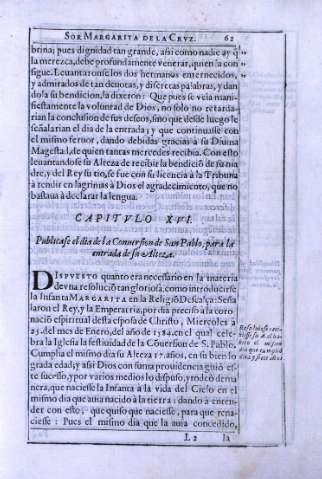 SOR MARGARITA DE LA CRVZ. 62
brina; pues dignidad tan grande, asi como nadie ay q̃
la merezca, debe profundamente venerar, quien la con
sigue. Leuantaronse los dos hermanos enternecidos,
y admirados de tan deuotas, y discretas palabras, y dan
dola su bendicion, la dixeron: Que pues se veia mani-
fiestamente la voluntad de Dios, no solo no retarda-
rian la conclusion de sus deseos, sino que desde luego le
señalarian el dia de la entrada; y que continuasse con
el mismo feruor, dando debidas gracias a su Diuina
Magestad, de quien tantas mercedes recibia. Con esto
leuantandose su Alteza de recibir la bendició de su ma
dre, y del Rey su tio, se fue con su licencia à la Tribuna
a rendir en lagrimas à Dios el agradecimiento, que no
bastaua à declarar la lengua.
CAPITVLO XVI.
Publicase el dia de la Conuersion de San Pablo, para la
entrada de su Alteza.
DISPVESTO quanto era necessario en la materia
de vna resolució tan gloriosa, como introducirse
la Infanta MARGARITA en la Religió Descalça: Seña
laron el Rey, y la Emperatriz, por dia preciso a la coro-
nacion espiritual desta esposa de Christo, Miercoles a
25. del mes de Enero, del año de 1584. en el qual cele
bra la Iglesia la festiuidad de la Cõuersion de S. Pablo.
Cumplia el mismo dia su Alteza 17. años, en su bien lo
grada edad; y assi Dios con suma prouidencia guiò es-
te sucesso, y por varios medios lo dispuso, y rodeò de ma
nera, que naciesse la Infanta à la vida del Cielo en el
mismo dia que auia nacido à la tierra: dando a enten-
der con esto, que quiso que naciesse, para que rena-
ciesse: Pues el mismo dia que la auia concedido,
I. 2 la